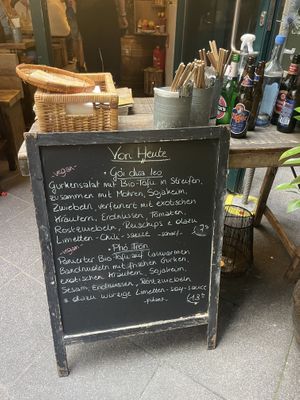 Von Heute
vegan
Gỏi dưa leo
Gurkensalat mit Bio-Tofu in Streifen,
zusammen mit Möhren, Sojakeim,
Zwiebeln, verfeinert mit exotischen
Kräutern, Erdnüssen, Tomaten,
Röstzwiebeln, Reischips & dazu
Limetten-Chili-sauce
vegan
Phở Trộn
Panierter Bio Tofu auf lauwarmen
Bandnudeln mit frischen Gurken,
exotischen Kräutern, Sojakeim,
Sesam, Erdnüssen, Röstzwiebeln
& dazu würzige Limetten-soy-sauce